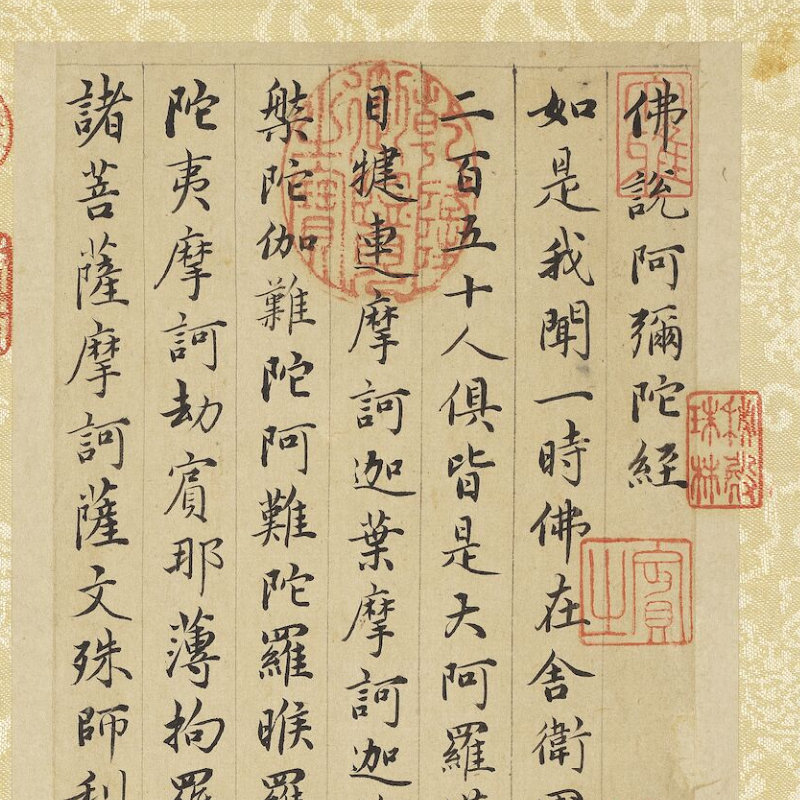 佛說阿彌陀經
如是我聞一時佛在舍衛
二百五十人俱皆是大阿羅
目犍連摩訶迦葉摩訶迦
槃陀伽難陀阿難陀羅睺羅
陀夷摩訶劫賓那薄拘羅
諸菩薩摩訶薩文殊師利
秘殿珠林